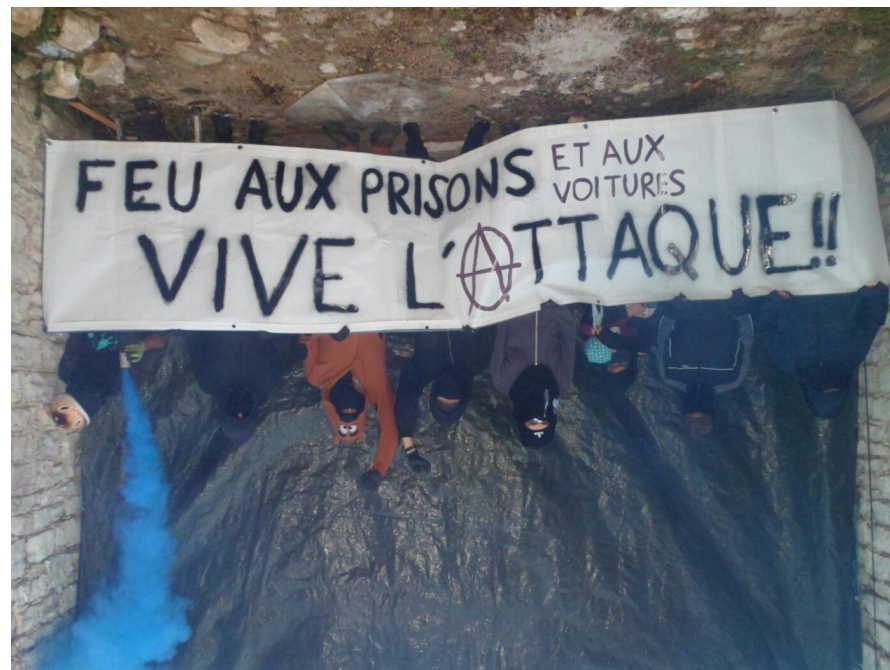 FEU AUX PRISONS
ET AUX
VOITURES
VIVE L'ATTAQUE!!